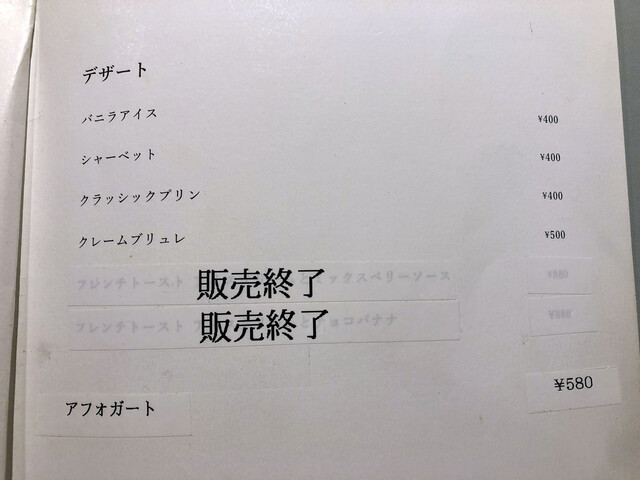 デザート
バニラアイス ¥400
シャーベット ¥400
クラッシックプリン ¥400
クレームブリュレ ¥500
フレンチトースト 販売終了 ックスベリーソース
フレンチトースト 販売終了 ョコバナナ
アフォガート ¥580